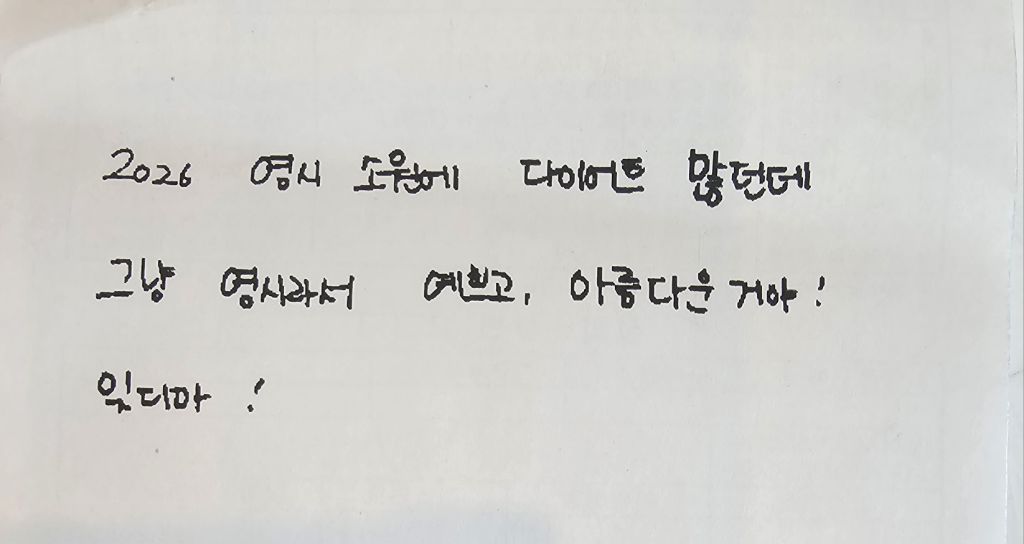 2026 영시 소원에 다이어트 많던데
그냥 영시라서 예쁘고, 아름다운 거야!
잊디마!